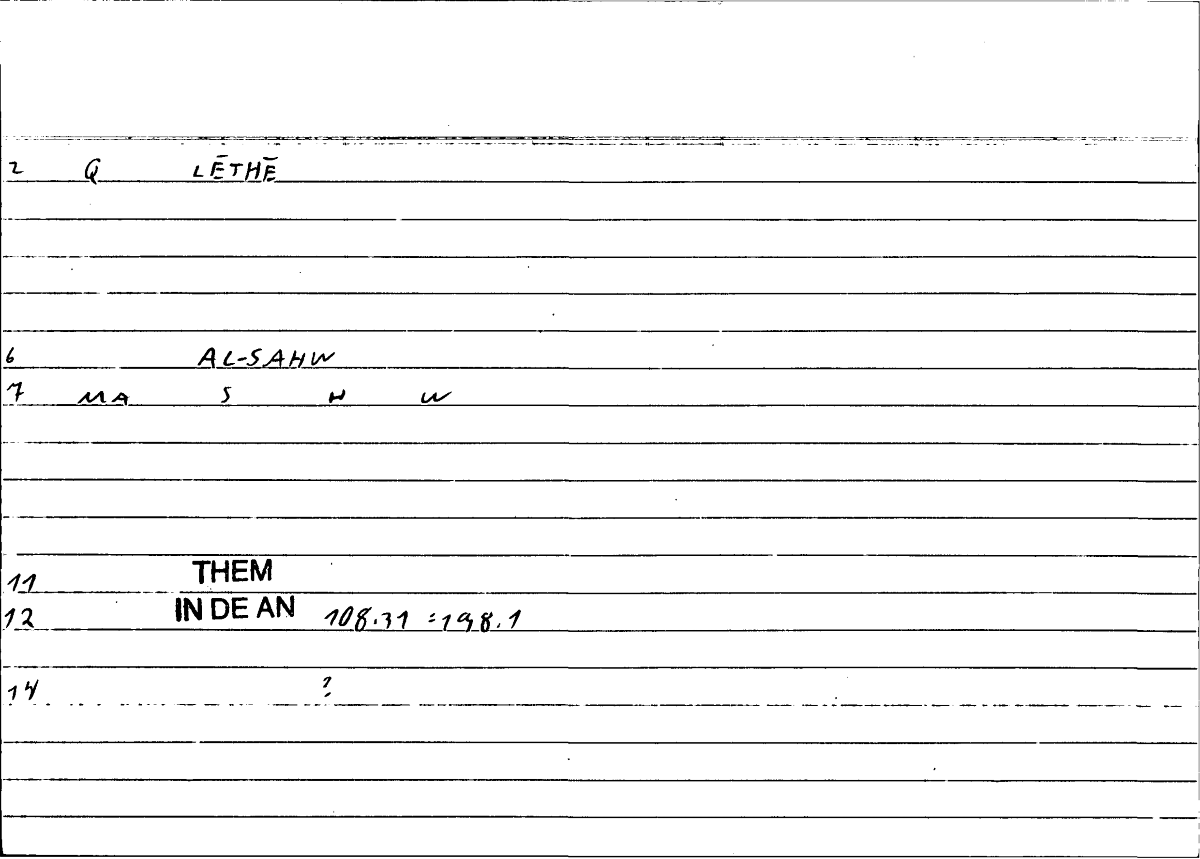 2 Q LĒTHĒ
6 AL-SAHW
7 MA S H W
11 THEM
12 IN DE AN 108.31 =198.1
14 ?